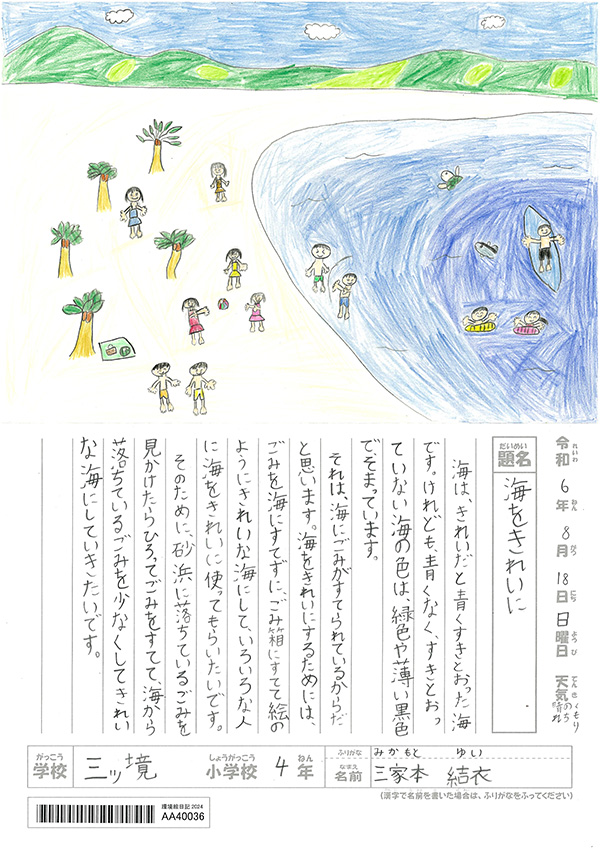 令和6年8月18日日曜日 天気くもりのち晴れ
れいわ ねん がつ にち ようび てんき
だいめい
題名 海をきれいに
海は、きれいだと青くすきとおった海
です。けれども、青くなく、すきとおっ
ていない海の色は、緑色や薄い黒色
でそまっています。
それは、海にごみがすてられているからだ
と思います。海をきれいにするためには、
ごみを海にすてずに、ごみ箱にすてて絵の
ようにきれいな海にして、いろいろな人
に海をきれいに使ってもらいたいです。
そのために、砂浜に落ちているごみを
見かけたらひろってごみをすてて、海から
落ちているごみを少なくしてきれい
な海にしていきたいです。
がっこう しょうがっこう ねん
学校 三ッ境 小学校 4年
ふりがな みかもと ゆい
なまえ
名前 三家本 結衣
(漢字で名前を書いた場合は、ふりがなをふってください)
環境絵日記 2024
AA40036